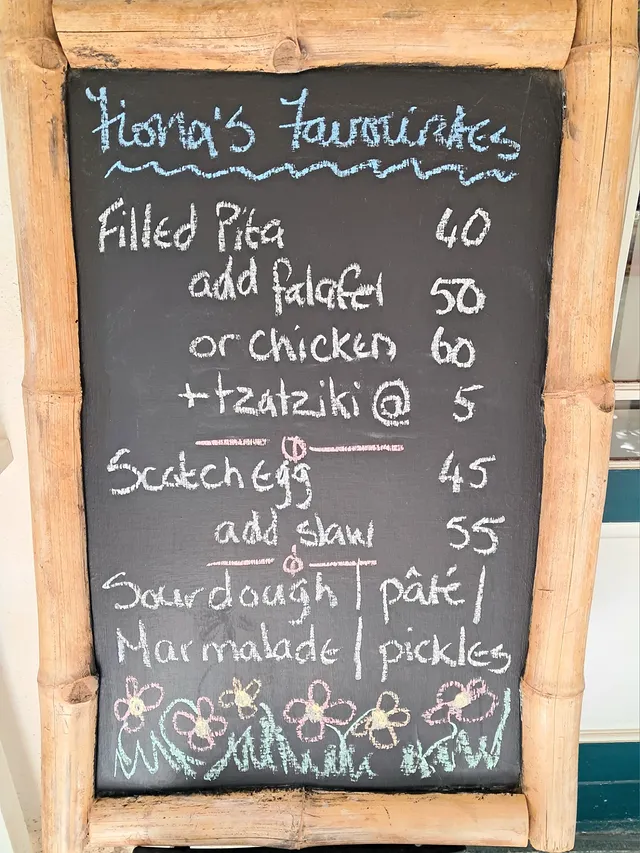 Fiona's Favourites
Filled Pita 40
add falafel 50
or chicken 60
+ tzatziki @ 5
Scotch Egg 45
add slaw 55
Sourdough | pâté |
Marmalade | pickles